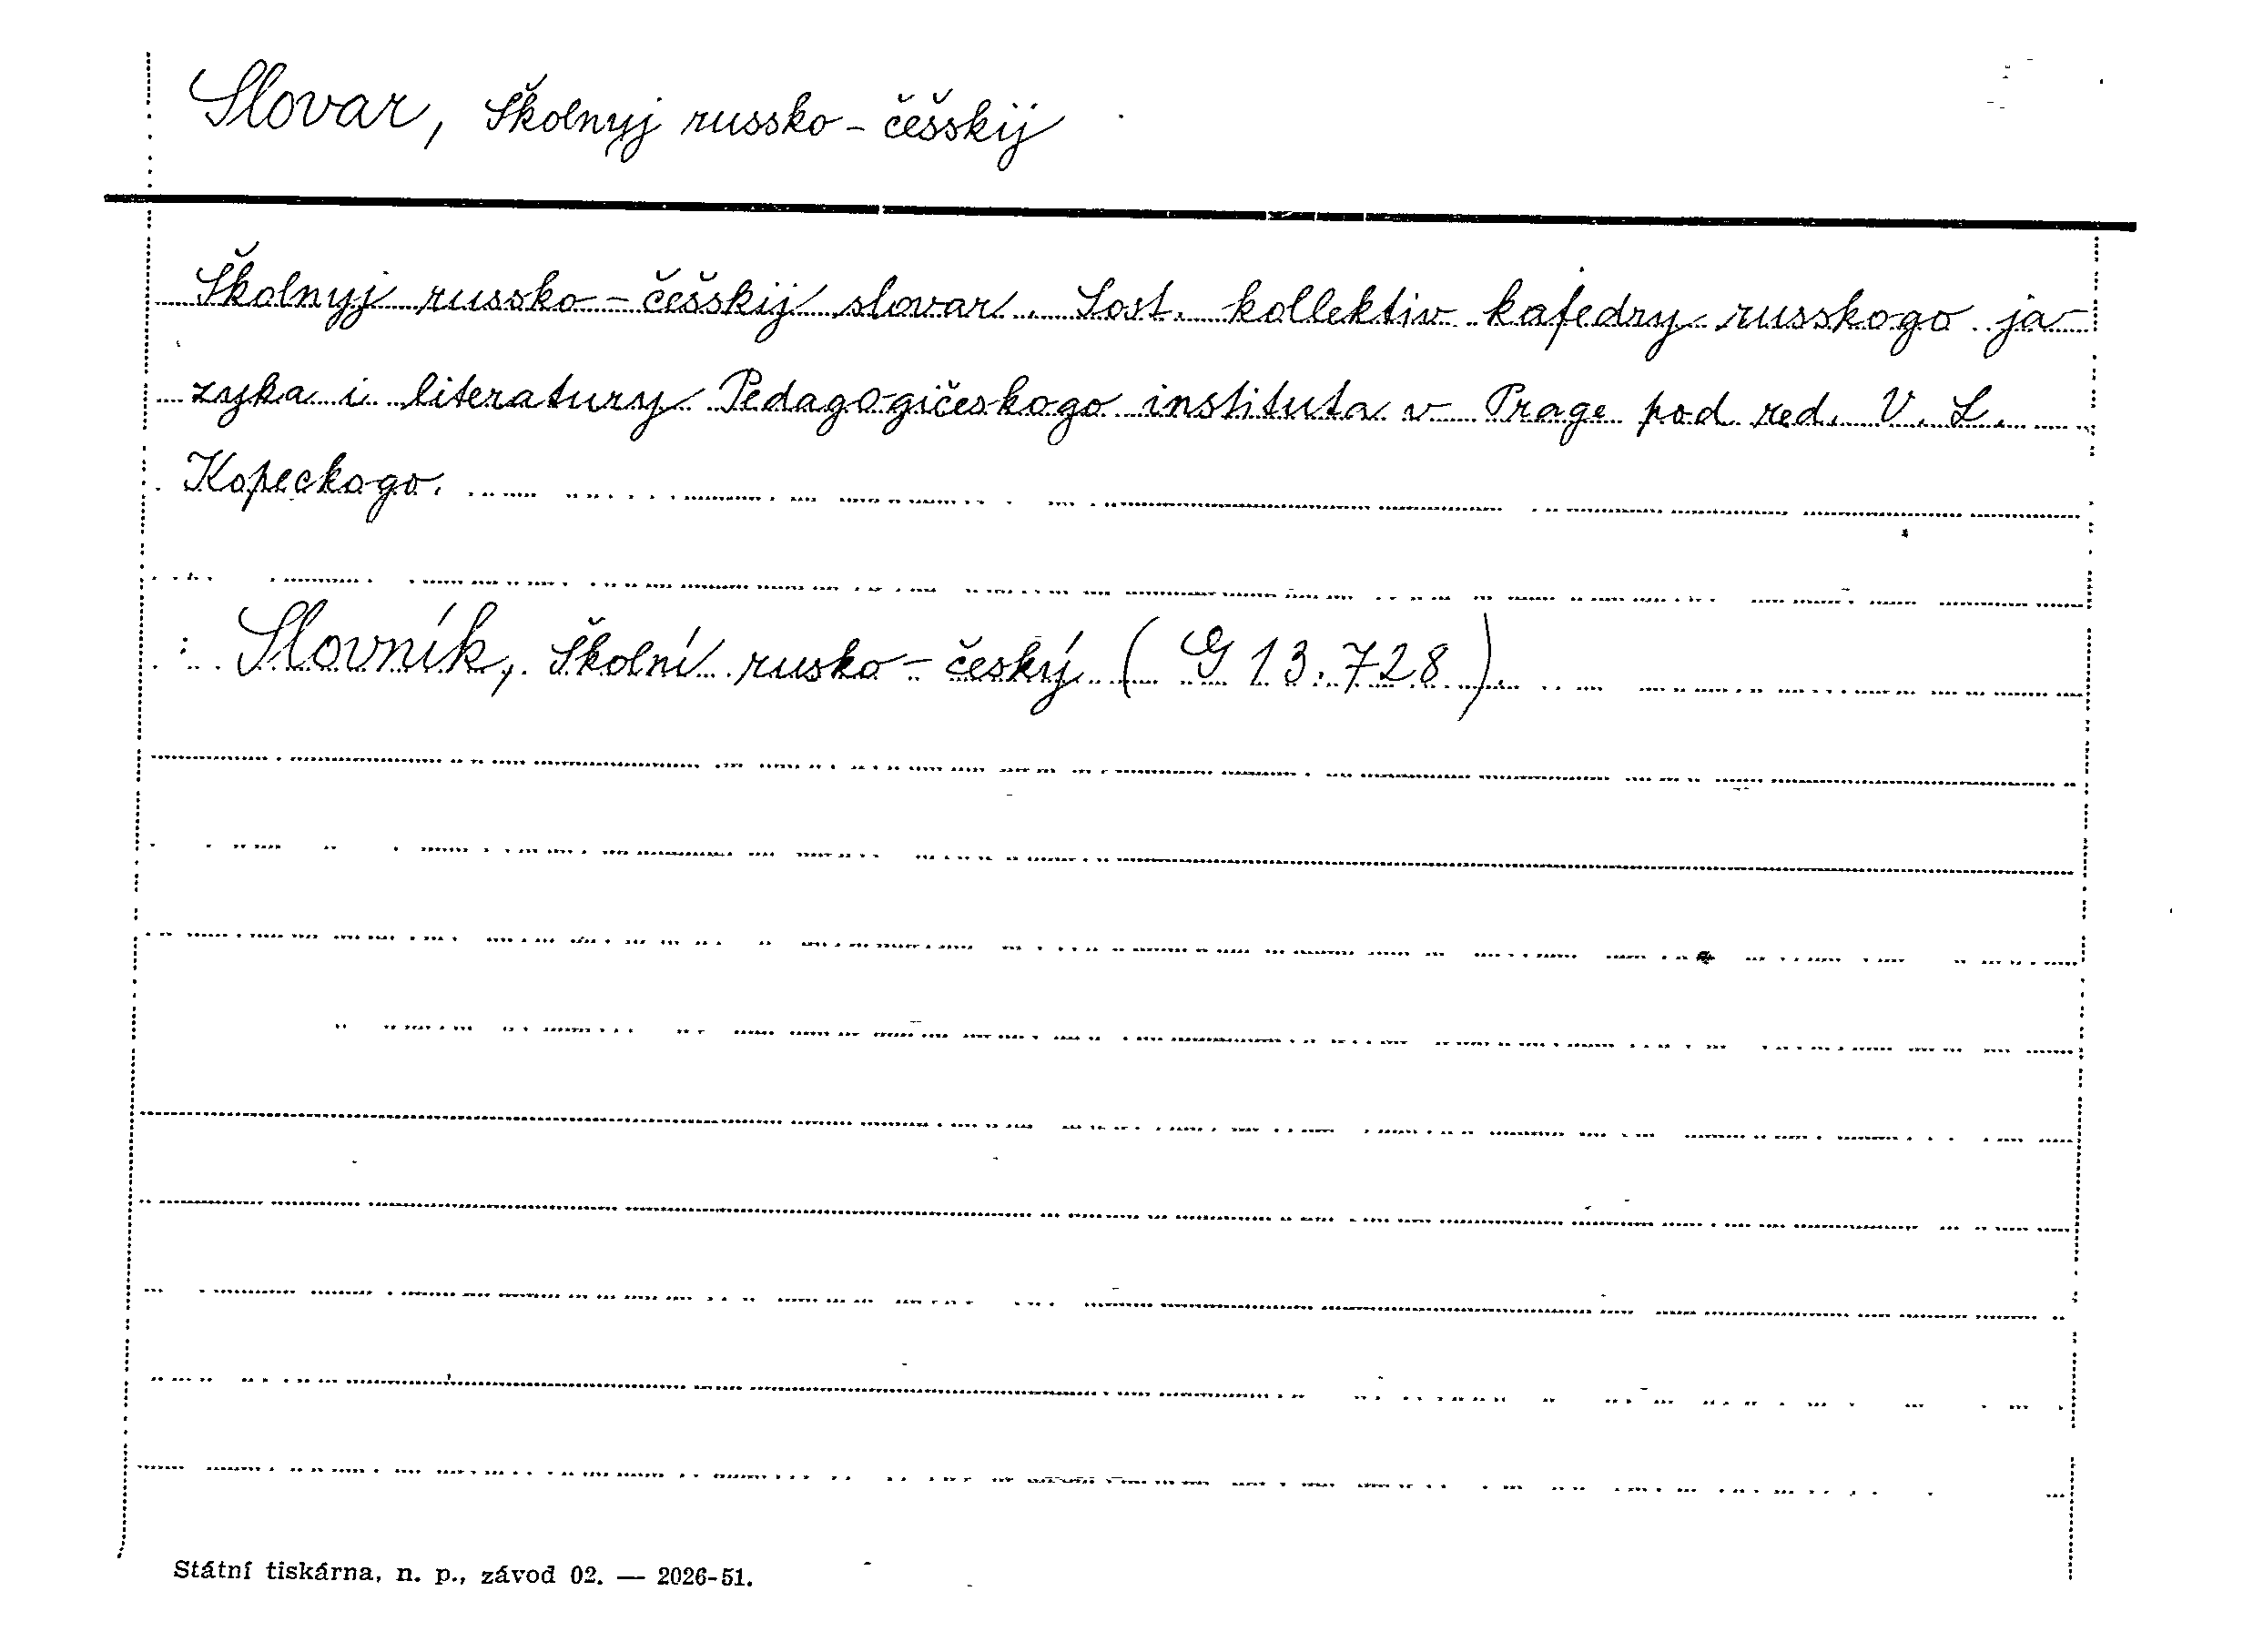 Slovar, školnyj russko-češskij
Školnyj russko-češskij slovar. Sost. kollektiv kafedry russkogo ja-
zyka i literatury Pedagogičeskogo instituta v Prage pod red. V. L.
Kopeckogo.
: Slovník, školní rusko-český (G 13.728).
Státní tiskárna, n. p., závod 02. — 2026-51.